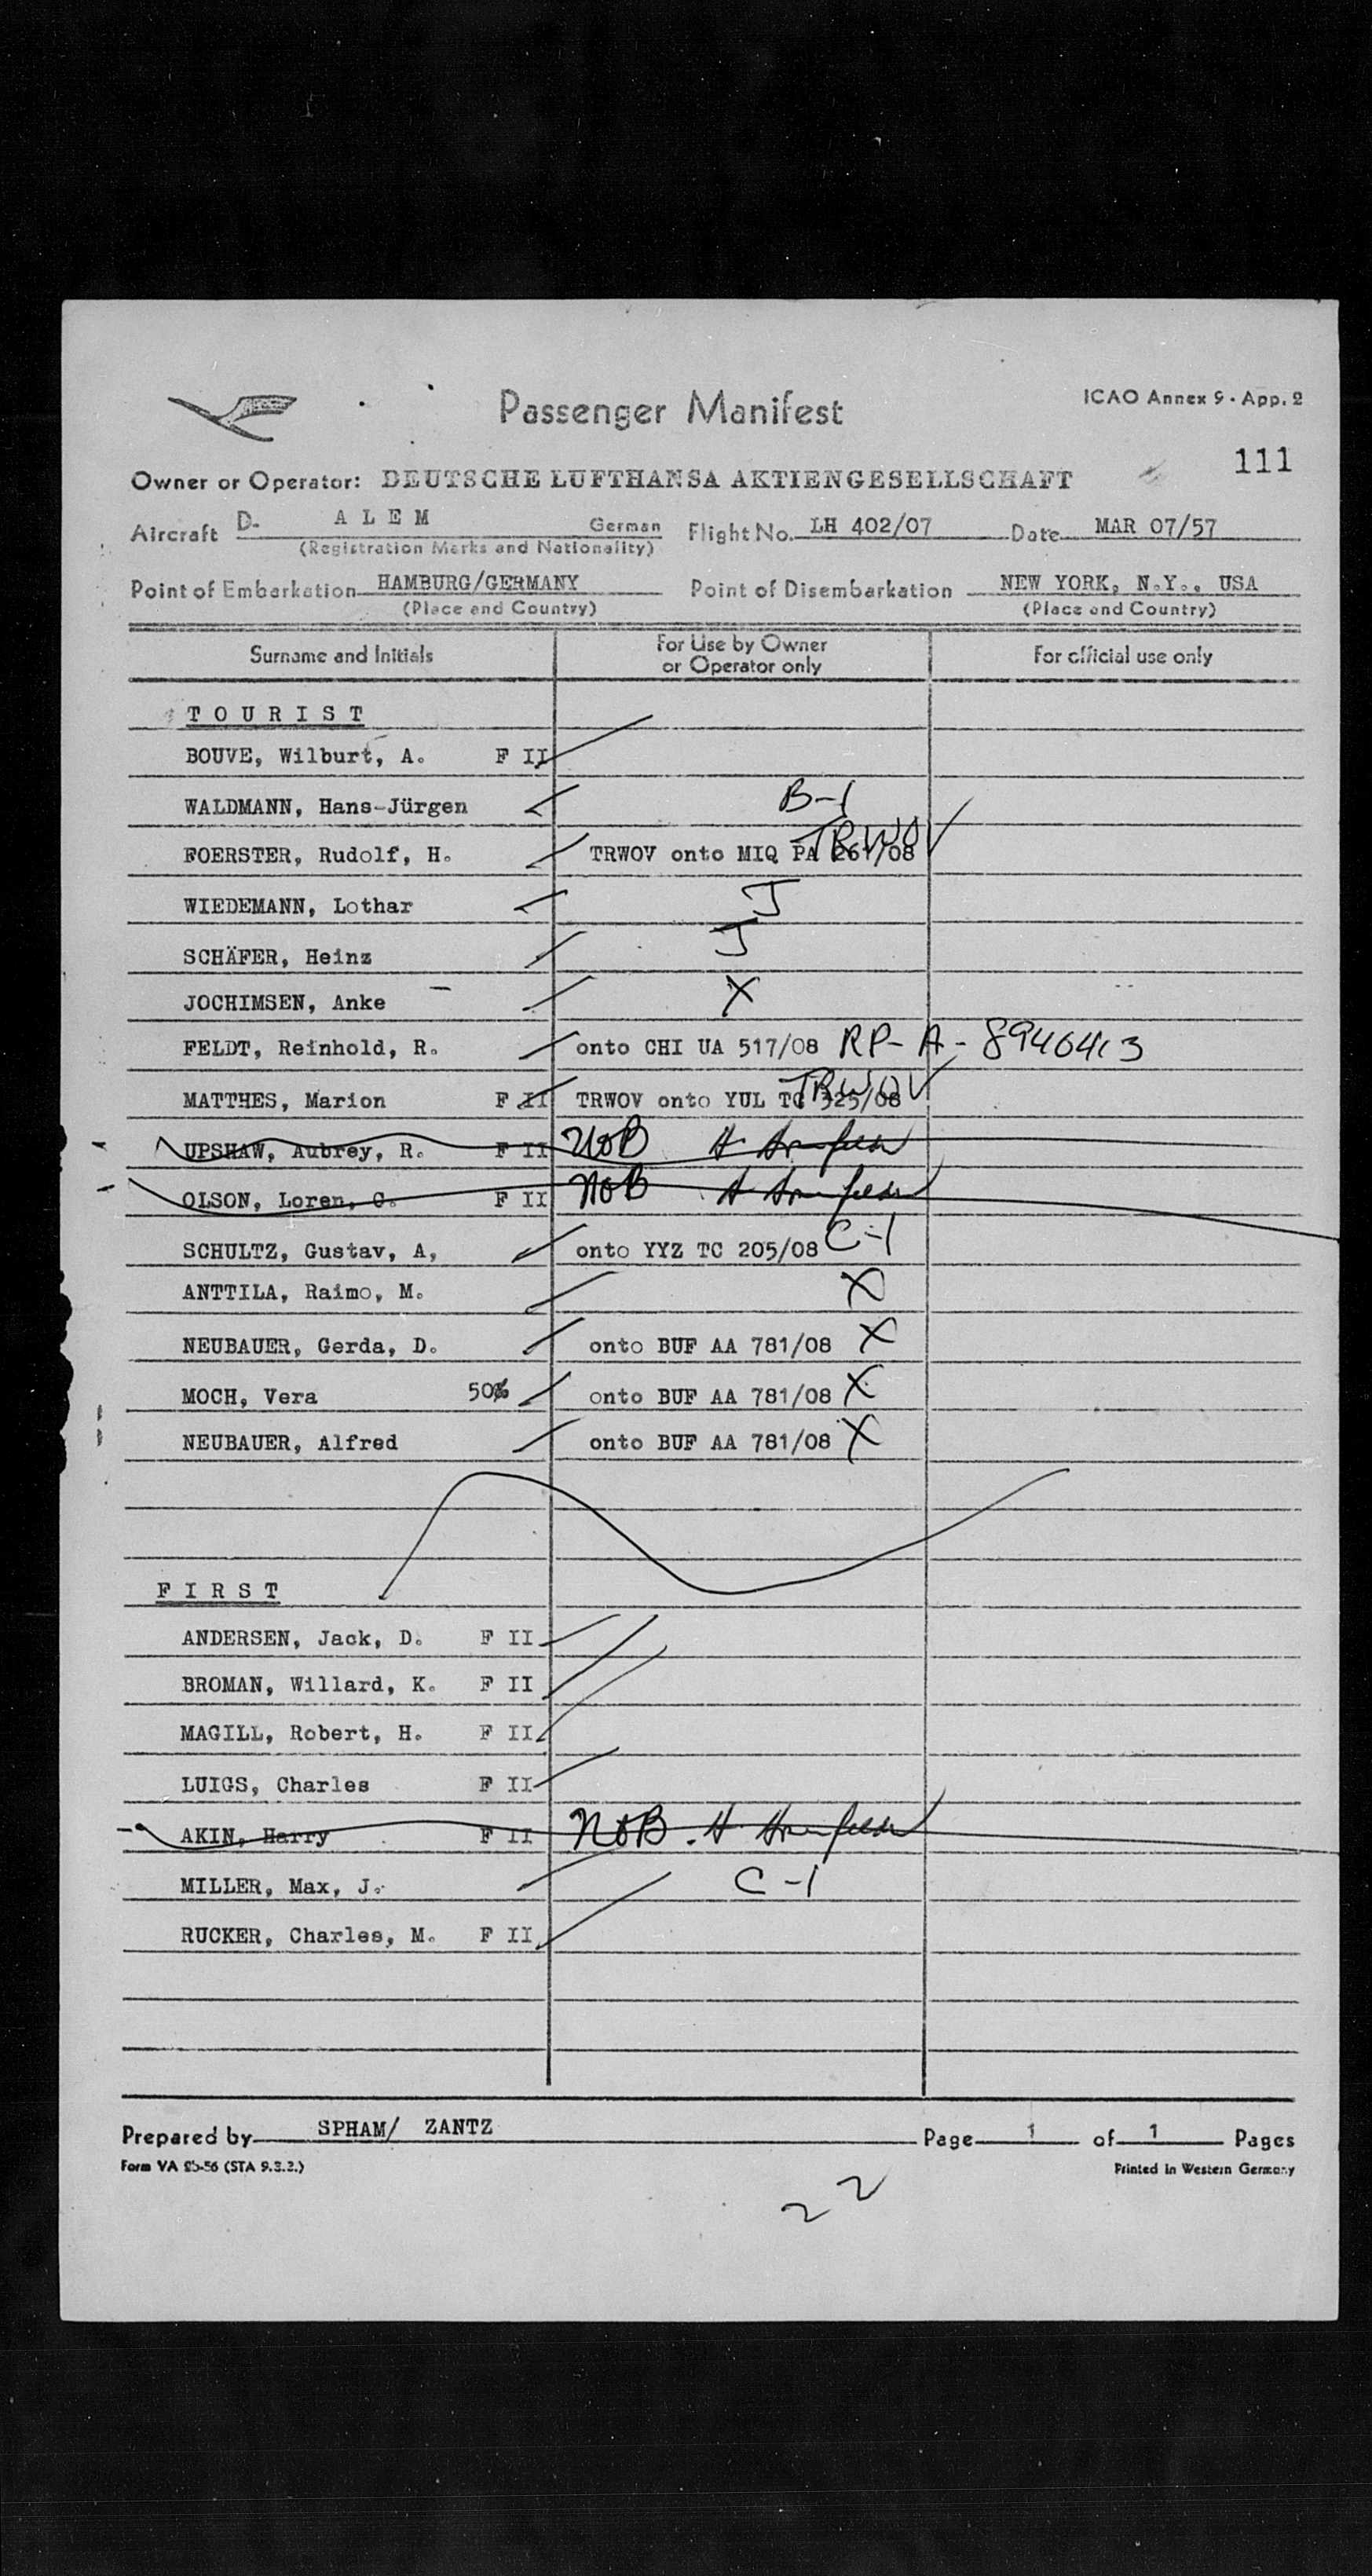 Passenger Manifest
ICAO Annex 9 - App. 2
111
Owner or Operator: DEUTSCHE LUFTHANSA AKTIENGESELLSCHAFT
Aircraft D- A L E M German Flight No. LH 402/07 Date MAR 07/57
(Registration Marks and Nationality)
Point of Embarkation HAMBURG/GERMANY Point of Disembarkation NEW YORK, N.Y., USA
(Place and Country) (Place and Country)
Surname and Initials For Use by Owner or Operator only For official use only
T O U R I S T
BOUVE, Wilburt, A. F II
WALDMANN, Hans-Jürgen B-1
TRWOV
FOERSTER, Rudolf, H. TRWOV onto MIQ PA 261/08
WIEDEMANN, Lothar J
SCHÄFER, Heinz J
JOCHIMSEN, Anke X
FELDT, Reinhold, R. onto CHI UA 517/08 RP-A-8940413
TRWOV
MATTHES, Marion F II TRWOV onto YUL TC 325/08
UPSHAW, Aubrey, R. F II NOB
OLSON, Loren, C. F II NOB
SCHULTZ, Gustav, A, onto YYZ TC 205/08 C-1
ANTTILA, Raimo, M. X
NEUBAUER, Gerda, D. onto BUF AA 781/08 X
MOCH, Vera 50% onto BUF AA 781/08 X
NEUBAUER, Alfred onto BUF AA 781/08 X
F I R S T
ANDERSEN, Jack, D. F II
BROMAN, Willard, K. F II
MAGILL, Robert, H. F II
LUIGS, Charles F II
AKIN, Harry F II NOB.
MILLER, Max, J. C-1
RUCKER, Charles, M. F II
Prepared by SPHAM/ ZANTZ Page 1 of 1 Pages
Form VA (STA 9.3.2.) Printed in Western Germany
22